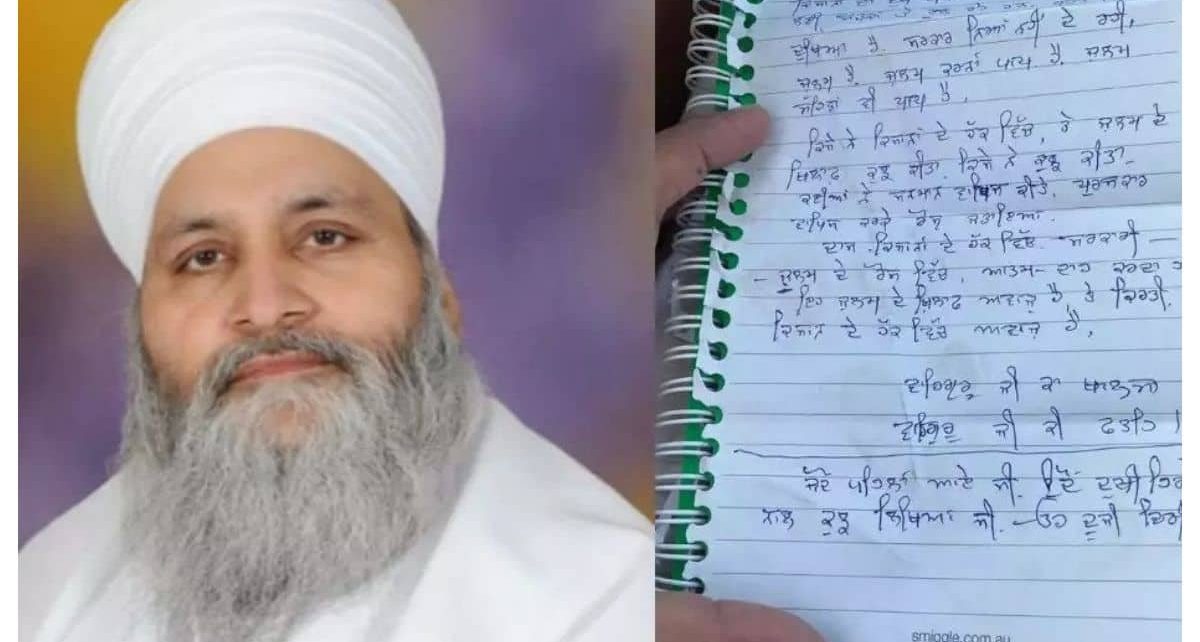 ਦੁਖਿਆ ਹੈ. ਸਰਕਾਰ ਨਿਆਂ ਨਹੀਂ ਦੇ ਰਹੀ,
ਜ਼ੁਲਮ ਹੈ. ਜ਼ੁਲਮ ਕਰਨਾਂ ਪਾਪ ਹੈ. ਜ਼ੁਲਮ
ਸਹਿਣਾਂ ਵੀ ਪਾਪ ਹੈ,
ਕਿਸੇ ਨੇ ਕਿਸਾਨਾਂ ਦੇ ਹੱਕ ਵਿੱਚ, ਤੇ ਜ਼ੁਲਮ ਦੇ
ਖਿਲਾਫ਼ ਕੁਝ ਕੀਤਾ. ਕਿਸੇ ਨੇ ਕੁਝ ਕੀਤਾ-
ਕਈਆਂ ਨੇ ਸਨਮਾਨ ਵਾਪਿਸ ਕੀਤੇ, ਪੁਰਸਕਾਰ
ਵਾਪਿਸ ਕਰਕੇ ਰੋਸ ਜਤਾਇਆ.
ਦਾਸ ਕਿਸਾਨਾਂ ਦੇ ਹੱਕ ਵਿੱਚ. ਸਰਕਾਰੀ —
- ਜ਼ੁਲਮ ਦੇ ਰੋਸ ਵਿੱਚ, ਆਤਮ-ਦਾਹ ਕਰਦਾ
ਇਹ ਜ਼ੁਲਮ ਦੇ ਖ਼ਿਲਾਫ ਅਵਾਜ਼ ਹੈ, ਤੇ ਕਿਰਤੀ.
ਕਿਸਾਨ ਦੇ ਹੱਕ ਵਿੱਚ ਅਵਾਜ਼ ਹੈ,
ਵਾਹਿਗੁਰੂ ਜੀ ਕਾ ਖਾਲਸਾ
ਵਾਹਿਗੁਰੂ ਜੀ ਕੀ ਫਤਹਿ।
ਪਹਿਲਾਂ ਆਏ ਸੀ.
ਨਾਲ ਕੁਝ ਲਿਖਿਆ ਸੀ. - ਓਹ ਦੂਜੀ
smiggle.com.au